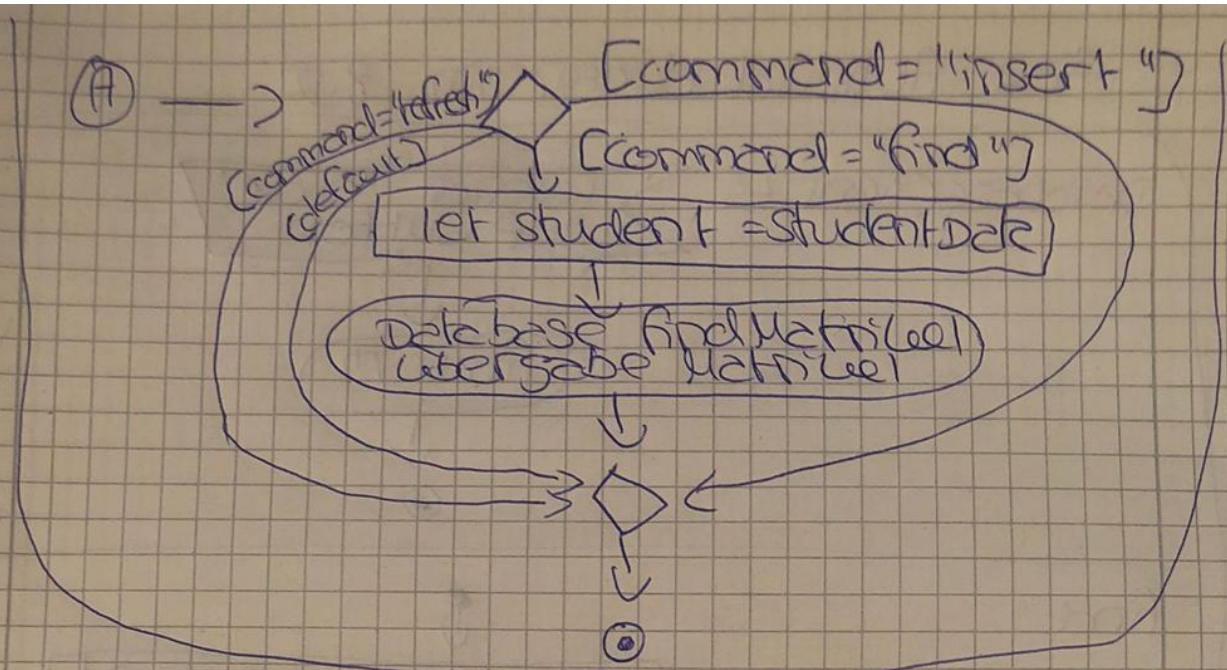 A
[command="insert"]
[command="refresh"]
[default]
[command="find"]
let student = studentDate
Database findMatrikel
übergabe Matrikel